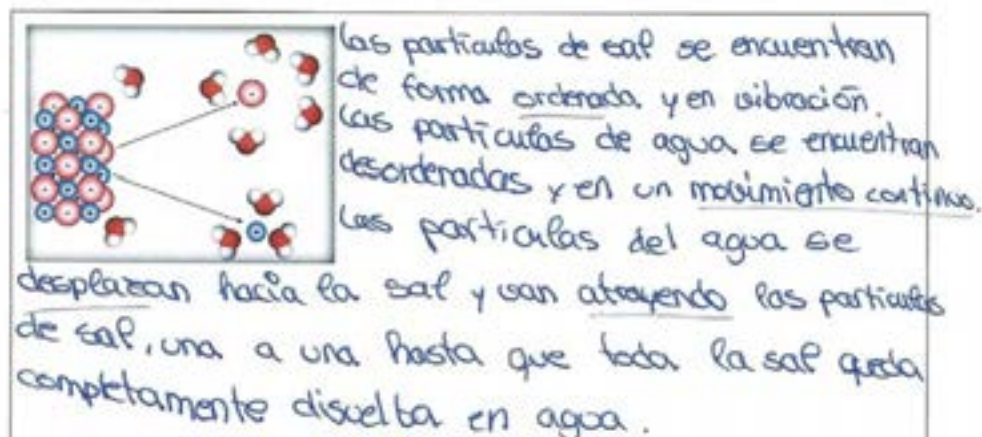 Las partículas de sal se encuentran
de forma ordenada y en vibración.
Las partículas de agua se encuentran
desordenadas y en un movimiento continuo.
Las partículas del agua se
desplazan hacia la sal y van atrayendo las partículas
de sal, una a una hasta que toda la sal queda
completamente disuelta en agua.